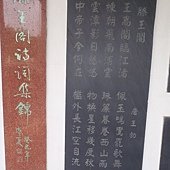 滕王閣
唐 王勃
王高閣臨江渚 佩玉鳴鸞罷歌舞
棟朝飛南浦雲 珠簾暮捲西山雨
雲潭影日悠悠 物換星移幾度秋
中帝子今何在 檻外長江空自流
王閣詩詞集錦